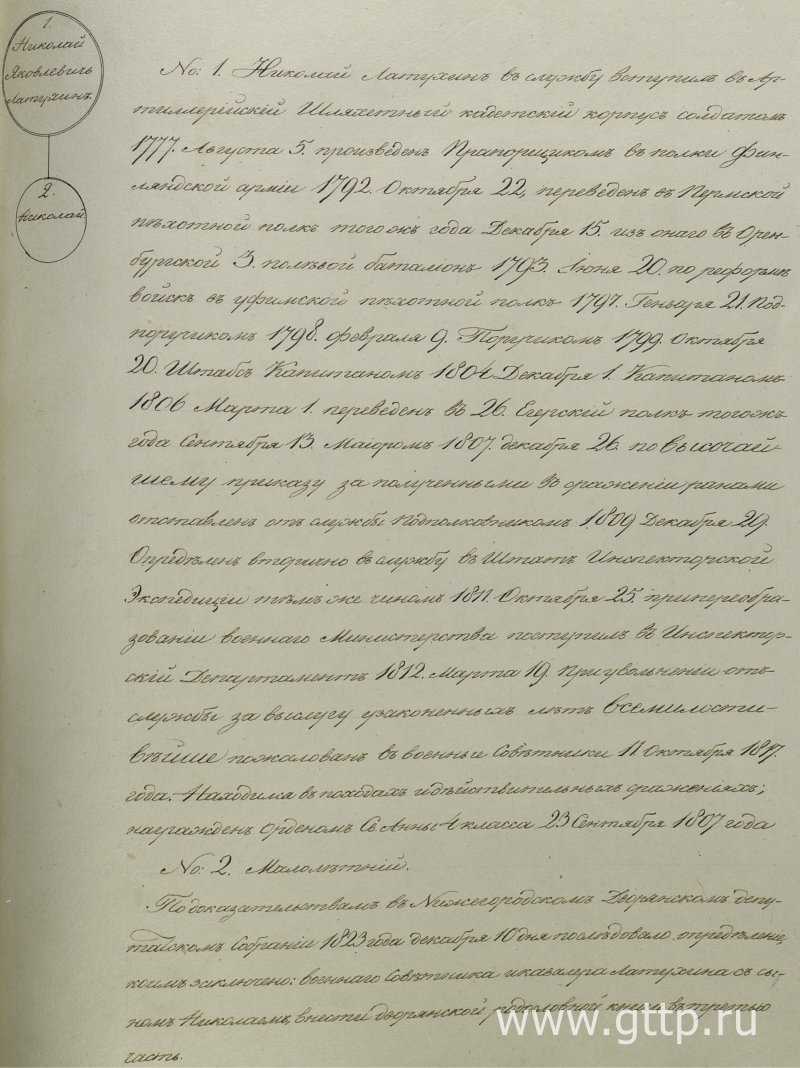 1.
Николай
Яковлевичь
Латухинъ.
2.
Николай
No: 1. Николай Латухинъ въ службу вступилъ въ Ар-
тиллерейскій Шляхетный кадетскій корпусъ солдатомъ
1777. Августа 5. произведенъ Прапорщикомъ въ полки Фин-
ляндской арміи 1792. Октября 22, переведенъ въ Пермской
пѣхотной полкъ тогожъ года Декабря 15. изъ онаго въ Орен-
бургской 3. полѣвой баталіонъ 1793. Іюня 20. по реформѣ
войскъ въ уфимской пѣхотной полкъ 1797. Геньваря 21. Под-
порутчикомъ 1798. февраля 9. Порутчикомъ 1799. Октября
20. Штабсъ Капитаномъ 1804 Декабря 1. Капитаномъ
1806 Марта 1. переведенъ въ 26. Егерскій полкъ тогожъ
года Сентября 13. Маіоромъ 1807. декабря 26. по высочай-
шему приказу за полученными въ сраженіи ранами
отставленъ отъ службы Подполковникомъ 1809 Декабря 29.
Опредѣленъ вторично въ службу въ Штатъ Инспекторской
Экспедиціи тѣмъ же чиномъ 1811. Октября 25. при преобра-
зованіи военнаго Министерства поступилъ въ Инспектор-
скій Департаментъ 1812. Марта 19. При увольненіи отъ
службы за выслугу узаконенныхъ лѣтъ всемилости-
вѣйше пожалованъ въ военные Совѣтники 11. Октября 1817.
года. Находился въ походахъ и дѣйствительныхъ сраженіяхъ;
награжденъ Орденомъ Св. Анны 4 класса 23 Сентября 1807 года
No: 2. Малолѣтній.
По доказательствамъ въ Нижегородскомъ Дворянскомъ депу-
татскомъ Собраніи 1823 года декабря 10 дня послѣдовало опредѣленіе,
коимъ заключено: военнаго Совѣтника и кавалера Латухина съ сы-
номъ Николаемъ, внести дворянской родословной книги въ третью
часть.
www.gttp.ru